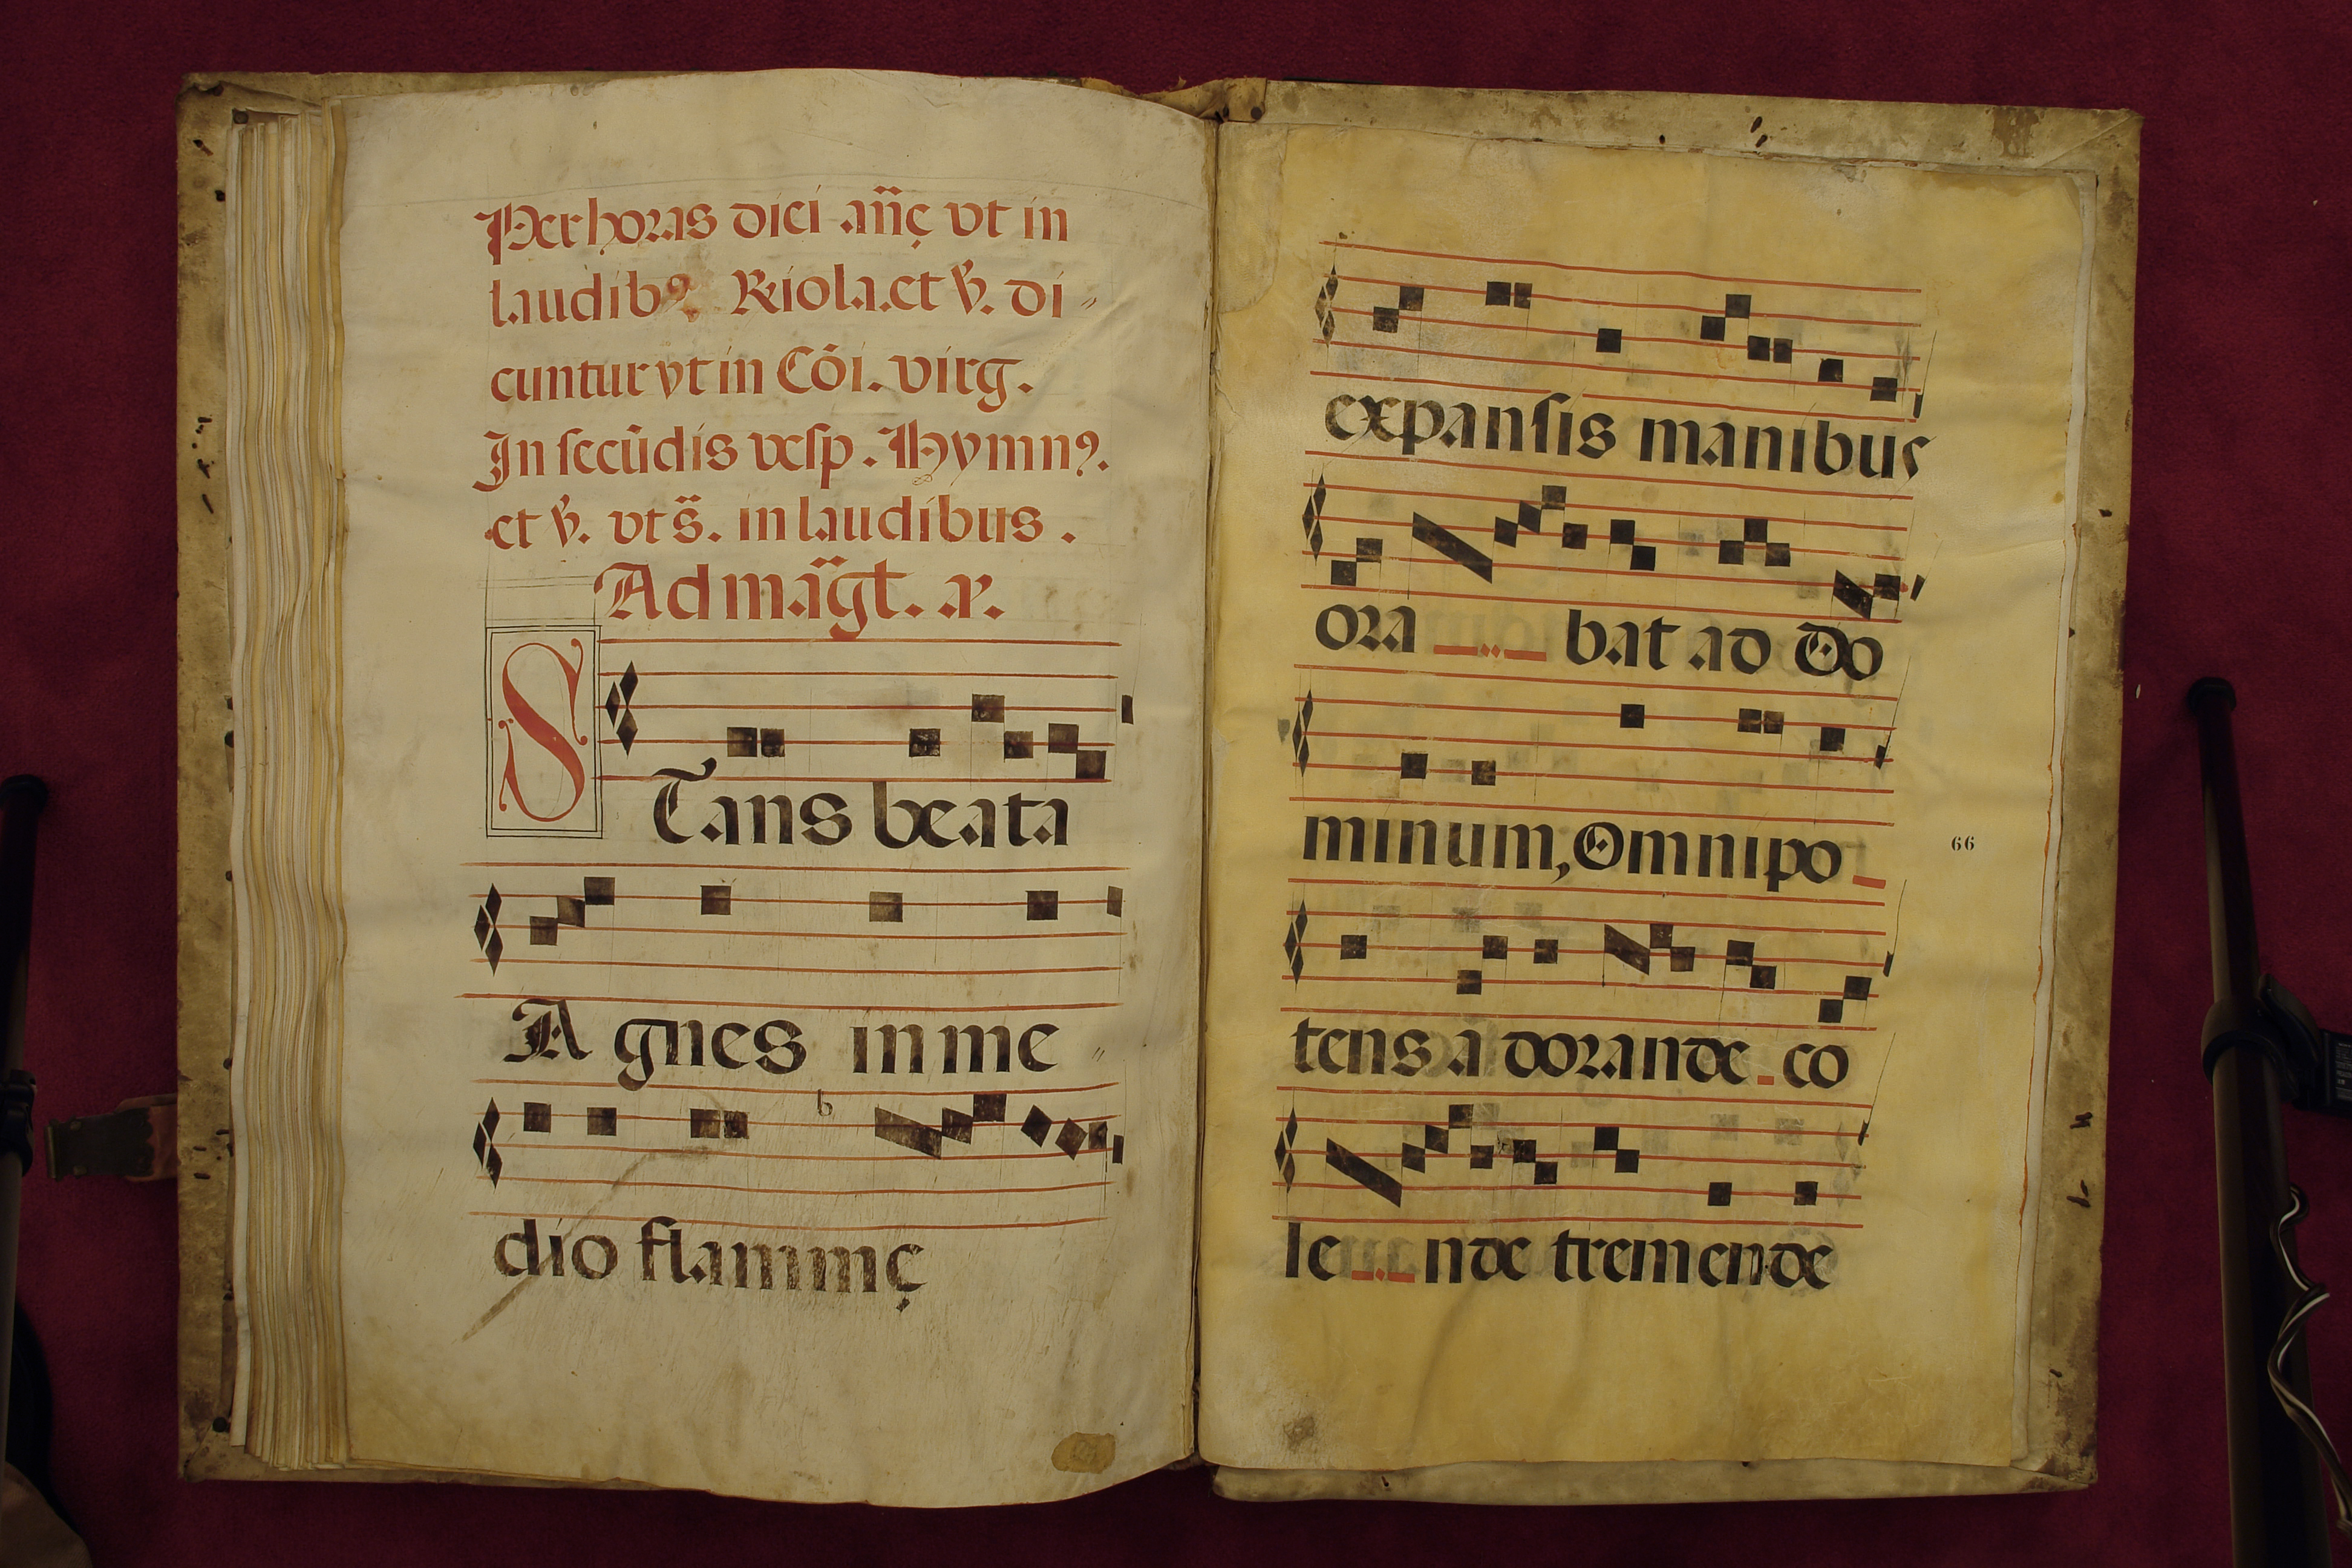 Per horas dici añę vt in
laudib9. R̃iola.et ṽ. di〃
cuntur vt in Cōi. virg.
In secūdis vesp. Hymn9.
et ṽ. vt s̃. in laudibus.
Ad mãgt. a.
STans beata
b
A gnes in me〃
dio flammę
expansis manibus
ora bat ad Do
minum, Omnipo
tens a dorande co
le nde tremende
66